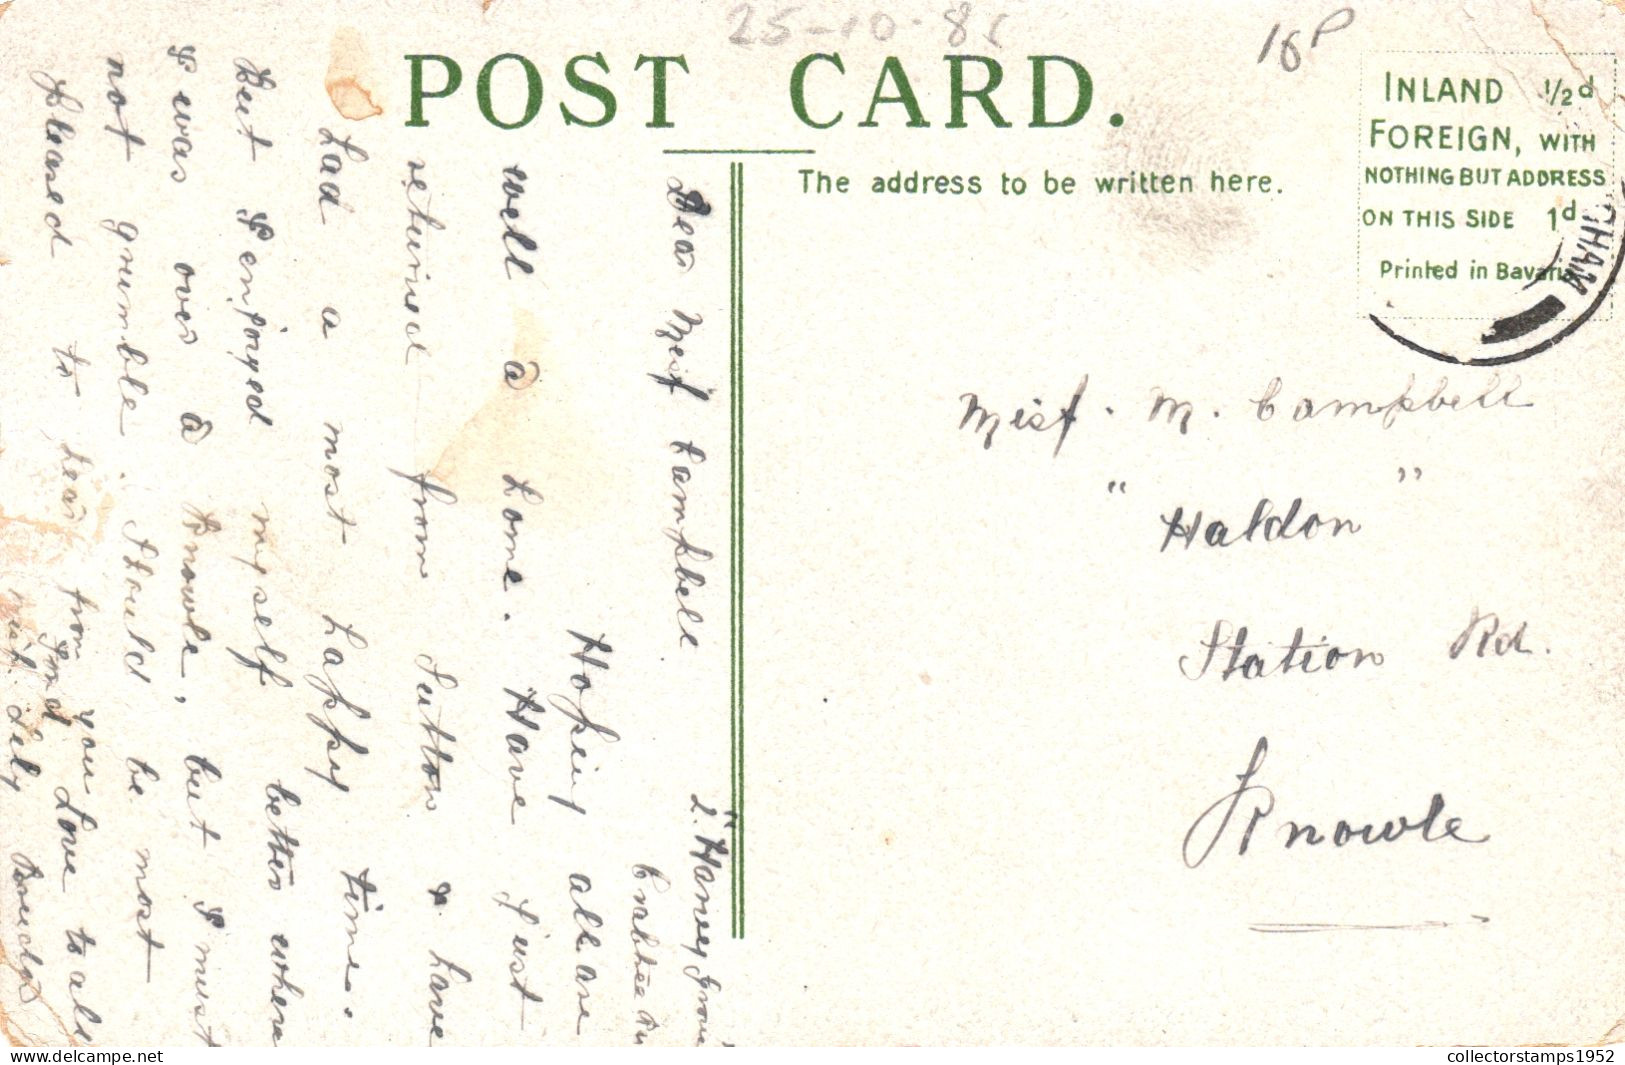 25-10-85
18P
POST CARD.
The address to be written here.
INLAND 1/2d
FOREIGN, WITH
NOTHING BUT ADDRESS
ON THIS SIDE 1d
Printed in Bavaria
HAM
Miss. M. Campbell
"Haldon"
Station Rd.
Knowle
Crabtree
Dear Miss Campbell
Hoping all are
well a home. Have just
returned from Sutton & have
had a most happy time.
But I enjoyed myself better where
I was over a Knowle, but I must
not grumble. Should be most
pleased to hear from you
Fond Love to all
collectorstamps1952
delcampe.net